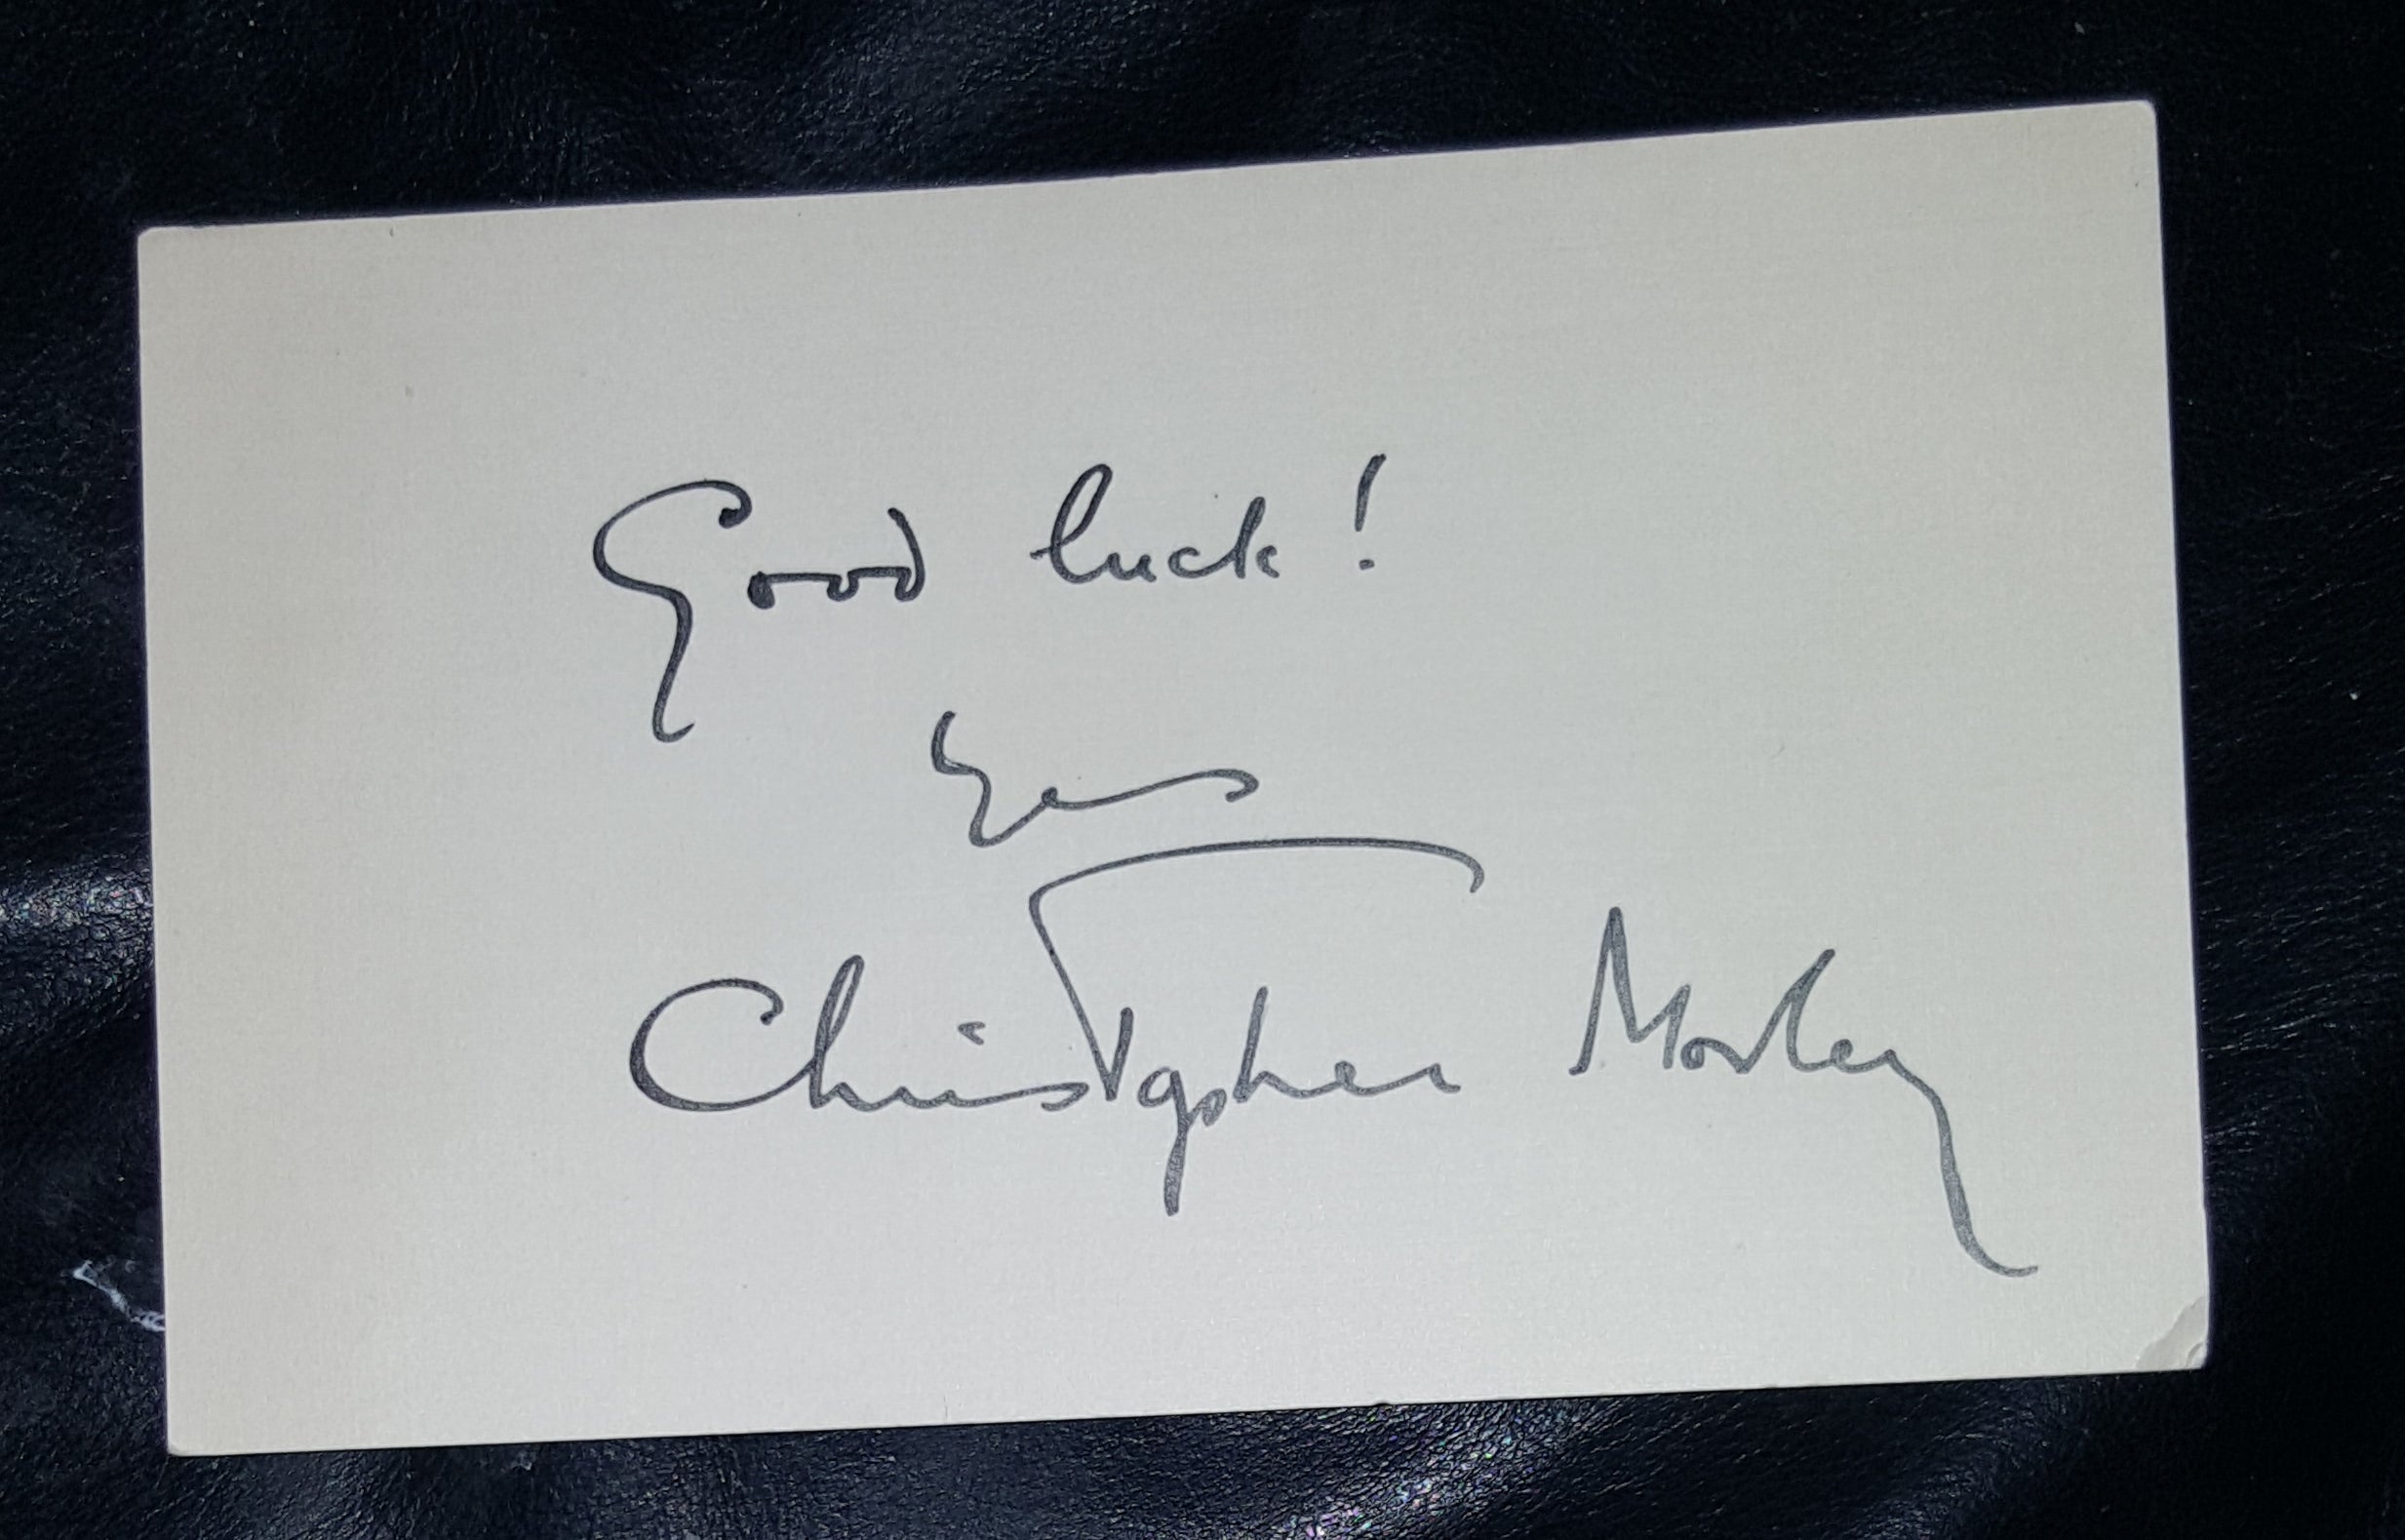 Good luck!
Yrs
Christopher Morley